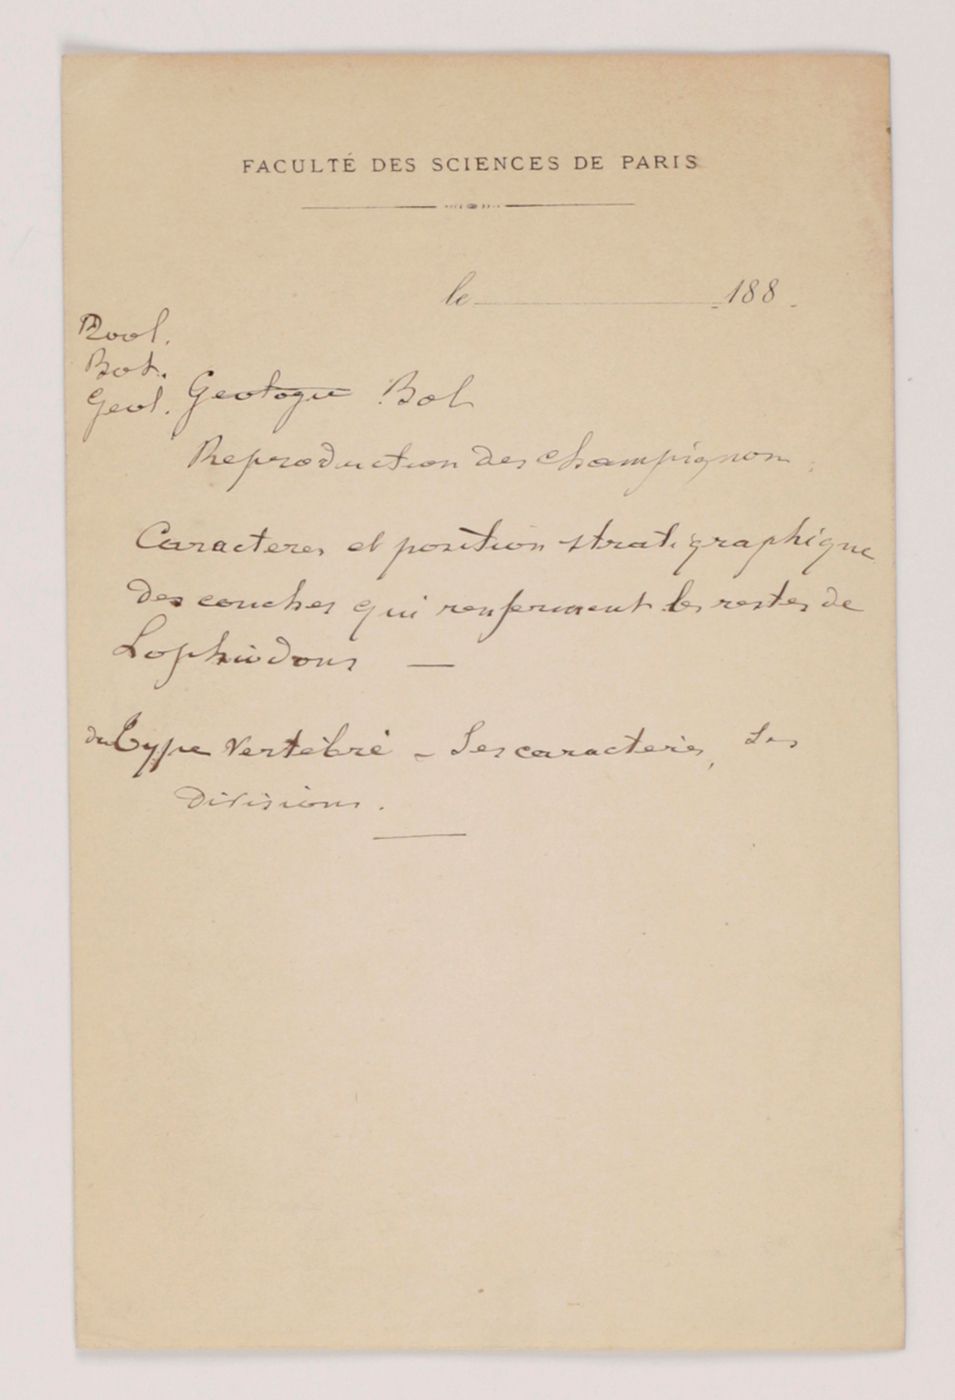 FACULTÉ DES SCIENCES DE PARIS
le 188
Zool.
Bot.
Geol. Geologie Bot
Reproduction des champignons
Caracteres et position stratigraphique
des couches qui renferment les restes de
Lophiodons —
du type Vertébré – Ses caracteres, Ses
divisions.